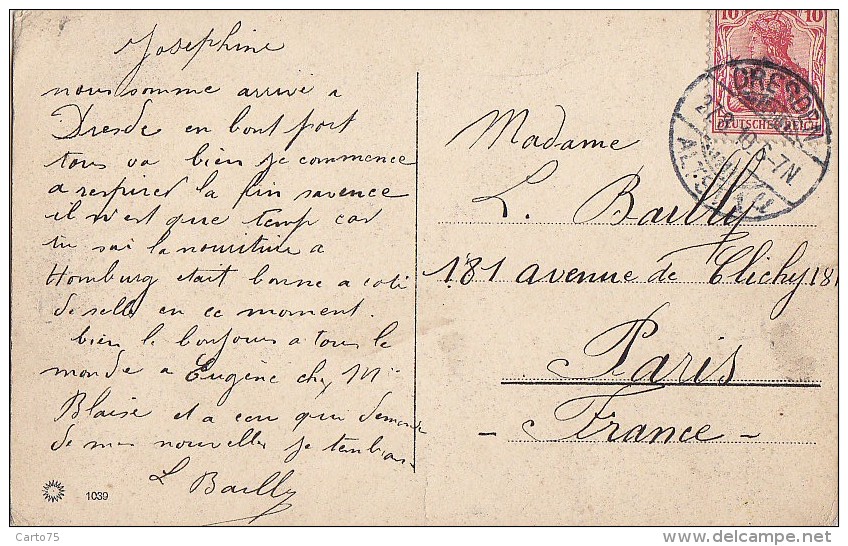 Josephine
nous somme arrivé a
Dresde en bont port
tous va bien je commence
a respirer la fin s'avence
il n'est que temp car
tu sai la nouriture a
Homburg etait bonne a coté
de selle en ce moment.
bien le bonjours a tous le
monde a Eugène chez Mme
Blaise et a ceu qui demande
de mes nouvelles je t'embrasse
L Bailly
1039
10 10
DEUTSCHES REICH
DRESDEN
ALTST.
6-7N.
Madame
L. Bailly
181 avenue de Clichy 181
Paris
- France -
Carto75
www.delcampe.net